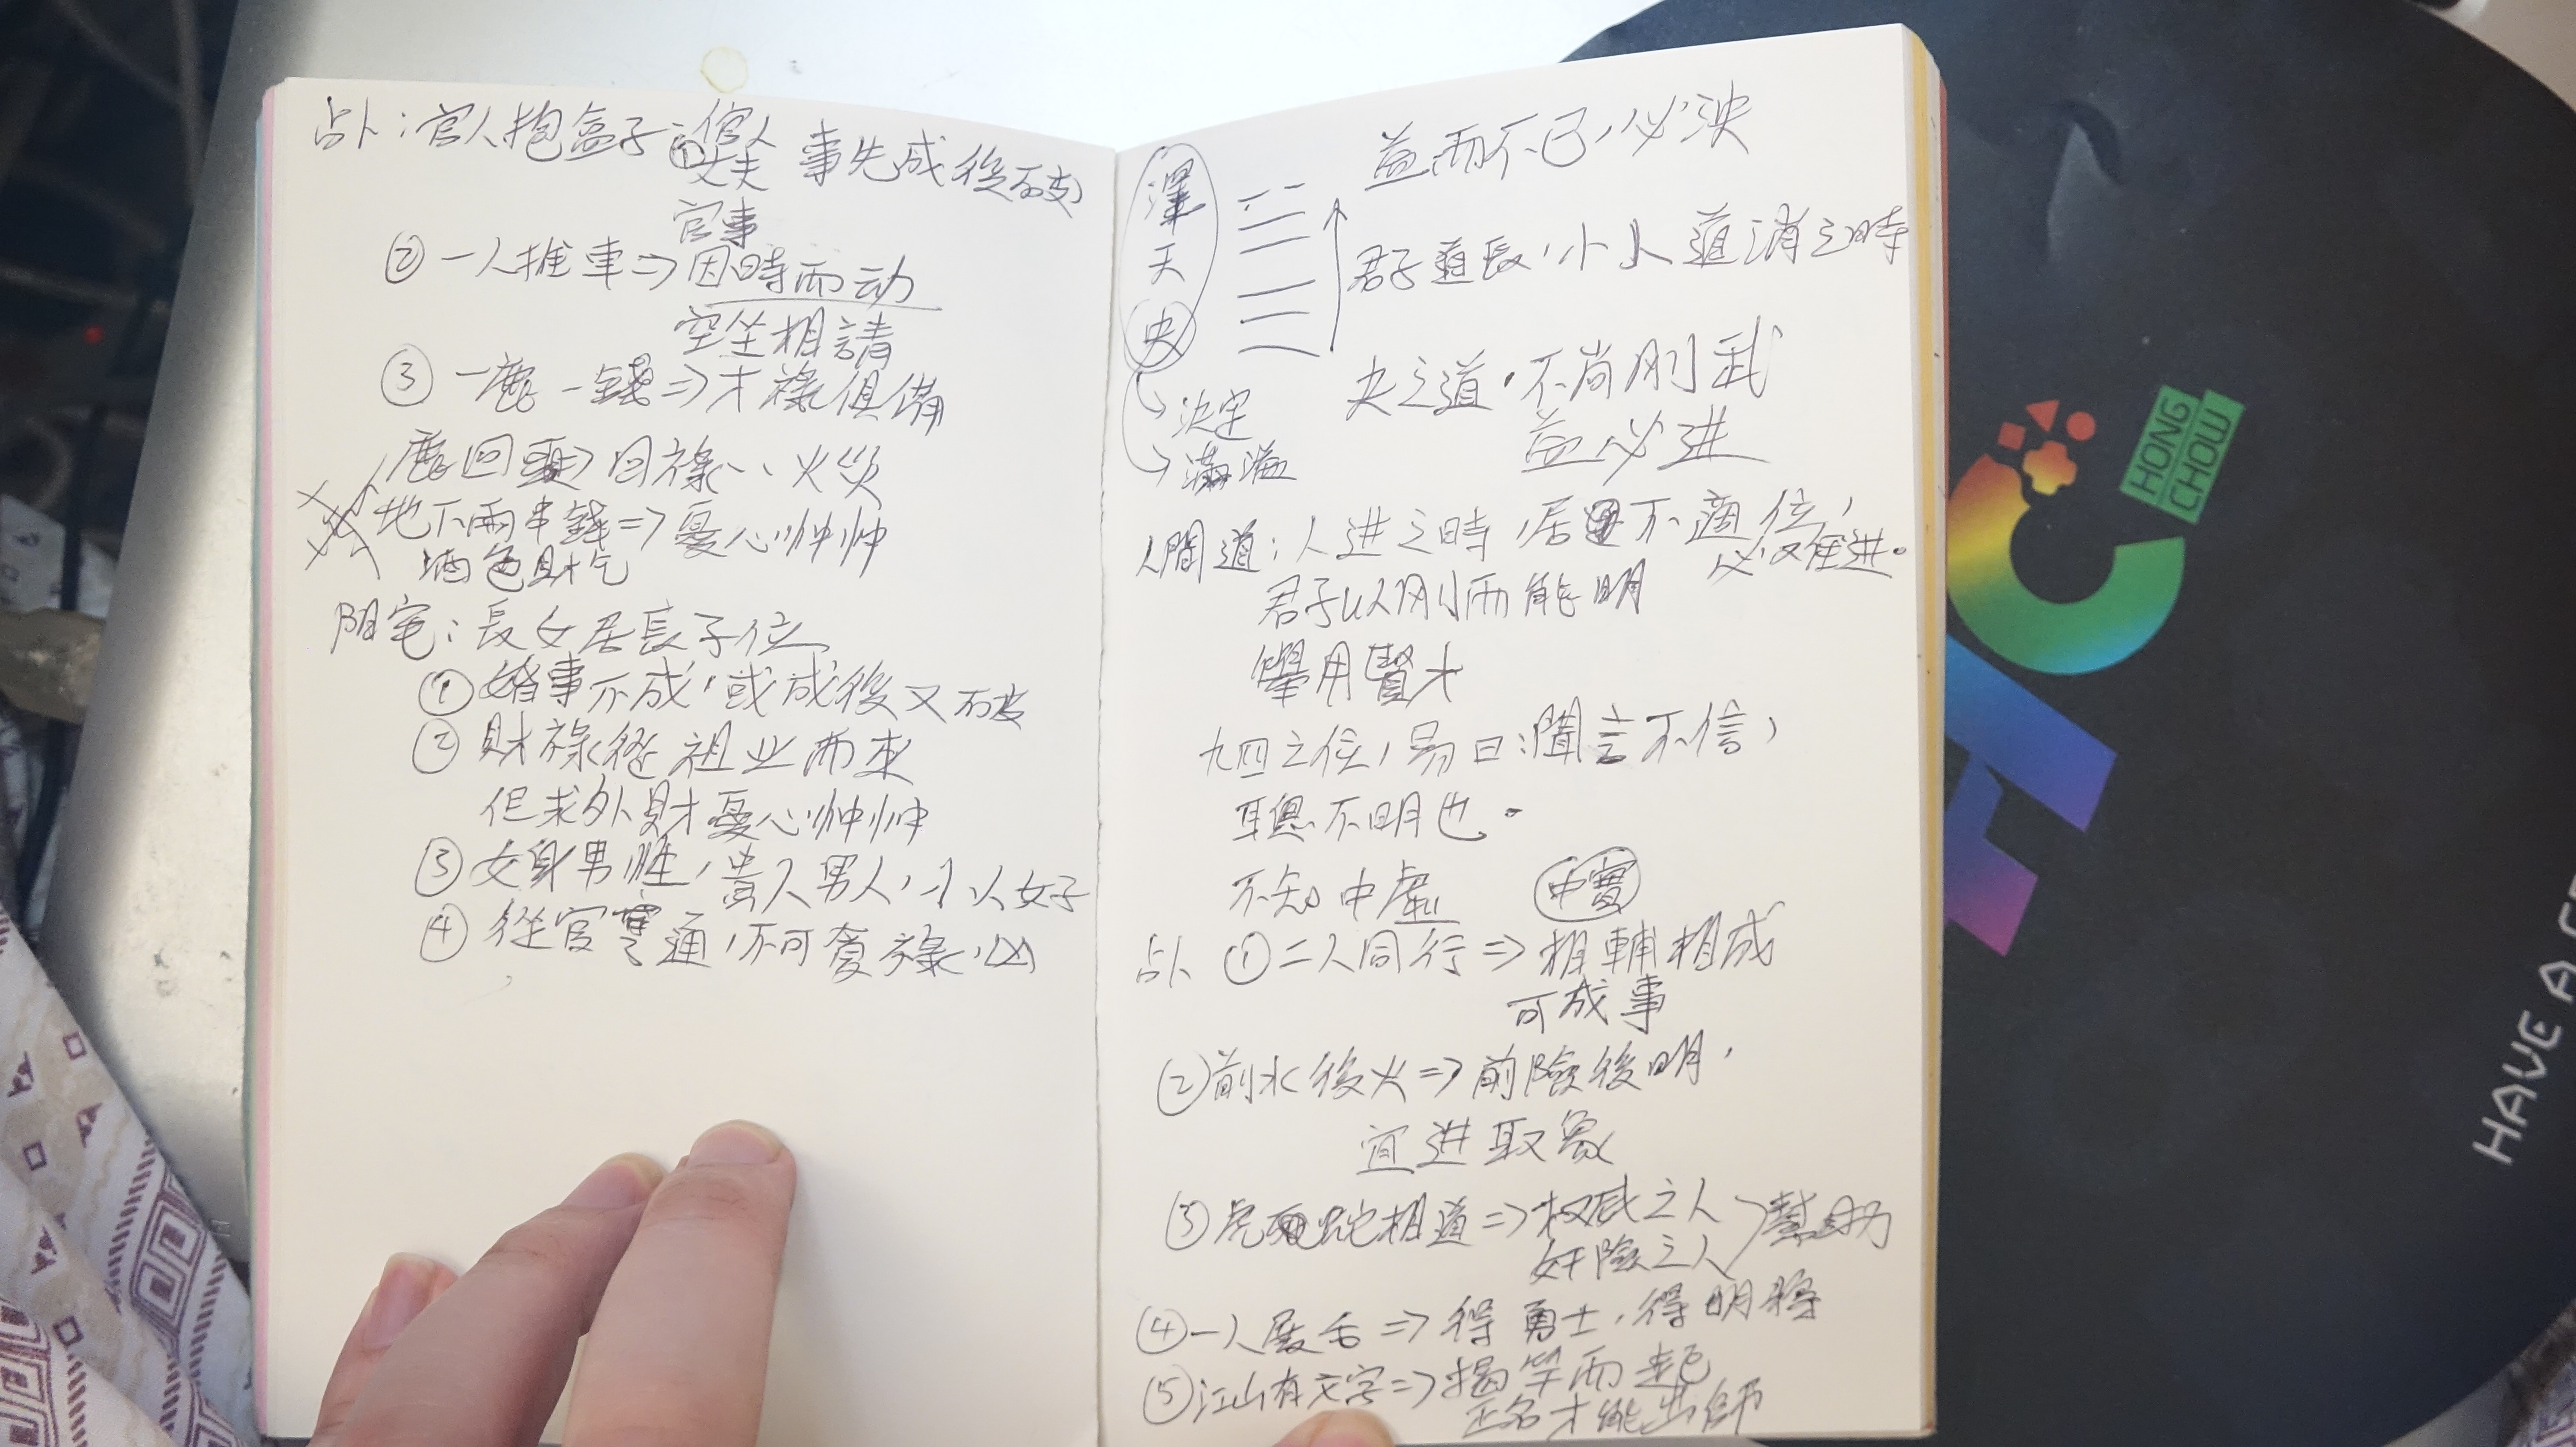 占卜：官人抱盒子
①官人
丈夫 事先成後破
官事
② 一人推車⇒因時而动
空坐相請
③ 一鹿一錢⇒才祿俱備
鹿回頭⇒回祿、、火災
地下兩串錢⇒憂心忡忡
酒色財气
陽宅：長女居長子位
① 婚事不成，或成後又破
② 財祿從祖业而來
但求外財憂心忡忡
③ 女身男性，貴人男人，小人女子
④ 從官亨通，不可奪祿，凶
益而不已，必決
澤
天
夬
君子道長，小人道消之時
夬之道，不尚刚武
益必进
決定
滿溢
人間道：人进之時，居不適位，
必难进。
君子以刚而能明
舉用賢才
九四之位，易曰：聞言不信，
聰不明也。
不知中虛 中實
占卜 ① 二人同行⇒相輔相成
可成事
② 前水後火⇒前險後明，
宜进取象
③ 虎蛇相道⇒权威之人
奸險之人
幫助
④ 一人展舌⇒得勇士，得明將
⑤ 江山有文字⇒揭竿而起
正名才能出師
HC
HONG
CHOW
HAVE A